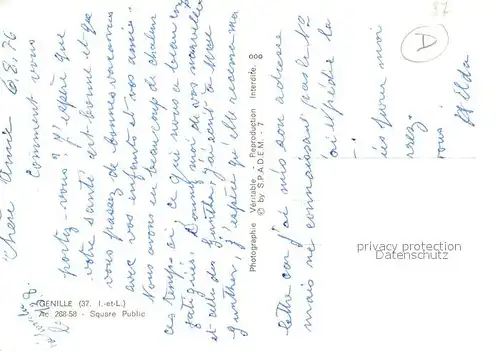 6.8.76
Chère Amie
Comment vous
portez-vous? J'espère que
votre santé est bonne et que
vous passez de bonnes vacances
avec vos enfants et vos amies.
Nous avons eu beaucoup de chaleur
ces temps-ci, ce qui nous a beaucoup
fatiguées. Donnez moi de vos nouvelles
et celles des Gunther, j'ai écrit à Mme
Gunther, j'espère qu'elle recevra ma
lettre car j'ai mis son adresse
mais ne connaissant pas le N°
ai expédié la
pour moi
vous!
Hilda
GENILLE (37. I.-et-L.)
Ac 268-58 - Square Public
Photographie Véritable - Reproduction Interdite.
© by S.P.A.D.E.M. 7
A
privacy protection
Datenschutz